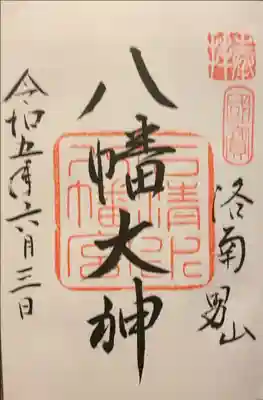 奉拝
洛南 男山
八幡大神
石清水
八幡宮
令和五年六月三日